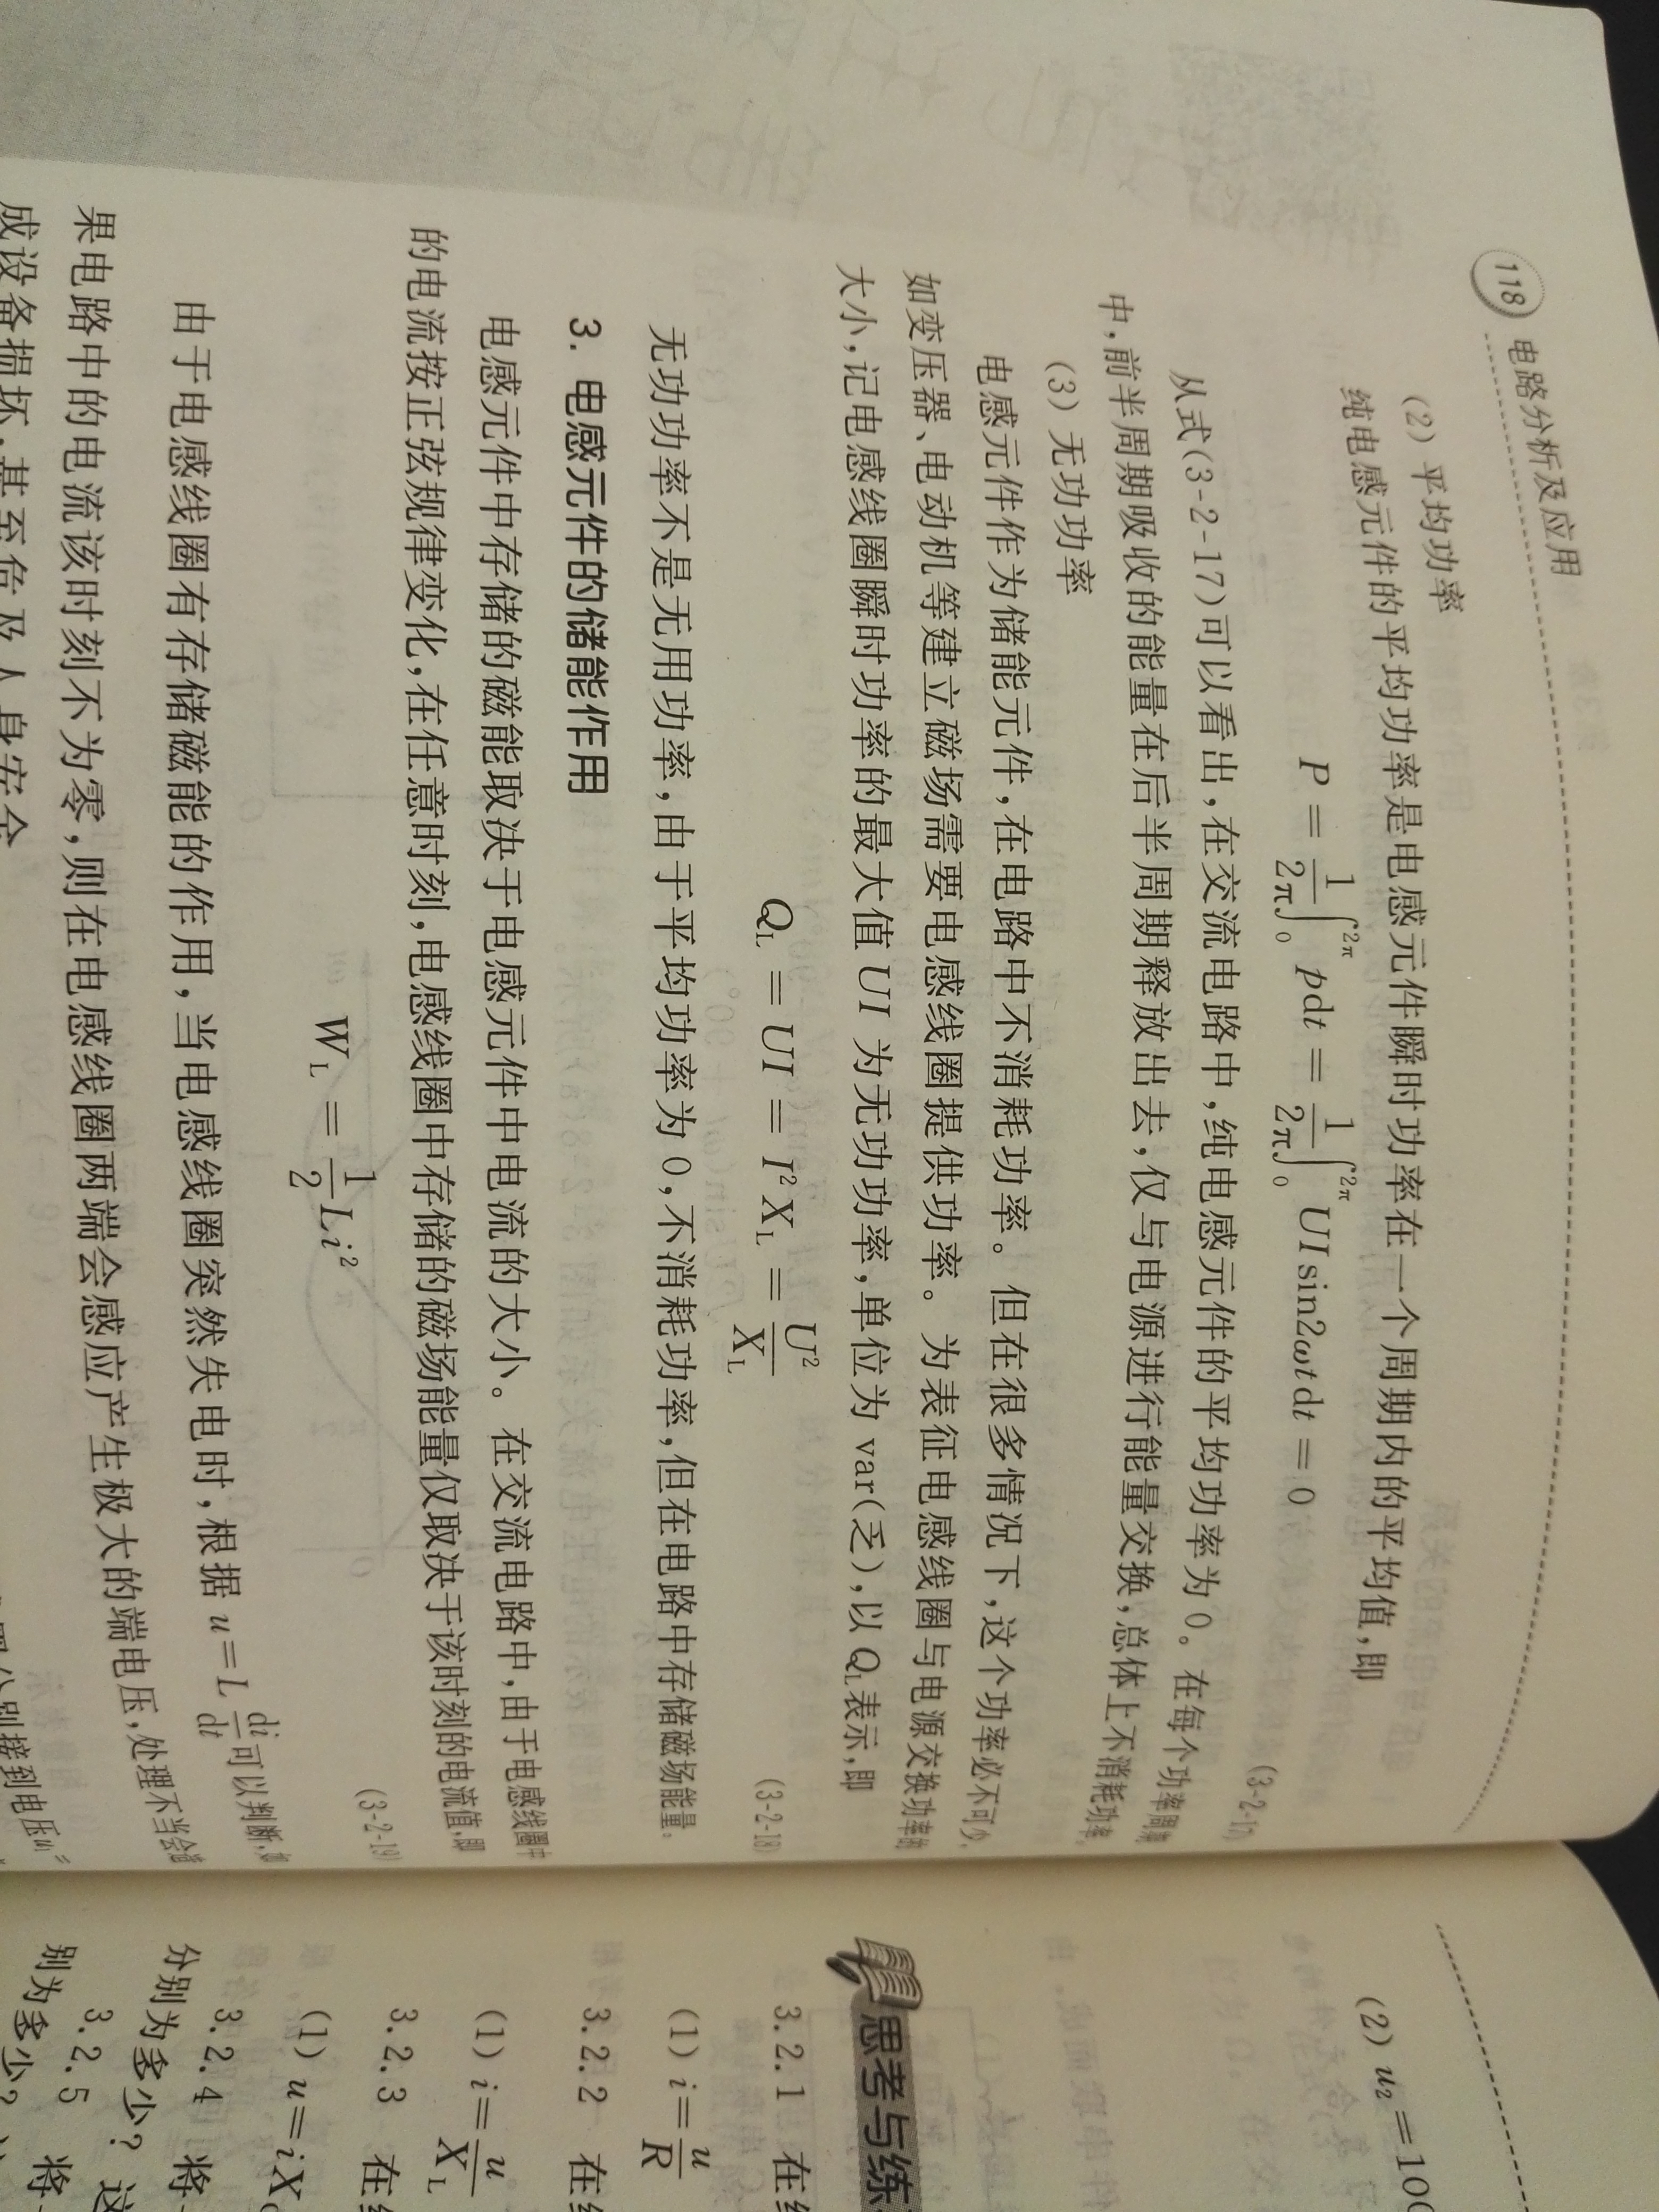 118 电路分析及应用
(2) 平均功率
纯电感元件的平均功率是电感元件瞬时功率在一个周期内的平均值,即
P = \frac{1}{2π}∫_0^{2π} pdt = \frac{1}{2π}∫_0^{2π} UIsin2ωtdt = 0 (3-2-17)
从式(3-2-17)可以看出,在交流电路中,纯电感元件的平均功率为0。在每个功率周期
中,前半周期吸收的能量在后半周期释放出去,仅与电源进行能量交换,总体上不消耗功率。
(3) 无功功率
电感元件作为储能元件,在电路中不消耗功率。但在很多情况下,这个功率必不可少,
如变压器、电动机等建立磁场需要电感线圈提供功率。为表征电感线圈与电源交换功率的
大小,记电感线圈瞬时功率的最大值UI为无功功率,单位为var(乏),以Q_L表示,即
Q_L = UI = I²X_L = \frac{U²}{X_L} (3-2-18)
无功功率不是无用功率,由于平均功率为0,不消耗功率,但在电路中存储磁场能量。
3. 电感元件的储能作用
电感元件中存储的磁能取决于电感元件中电流的大小。在交流电路中,由于电感线圈中
的电流按正弦规律变化,在任意时刻,电感线圈中存储的磁场能量仅取决于该时刻的电流值,即
W_L = \frac{1}{2}Li² (3-2-19)
由于电感线圈有存储磁能的作用,当电感线圈突然失电时,根据u=L\frac{di}{dt}可以判断,如
果电路中的电流该时刻不为零,则在电感线圈两端会感应产生极大的端电压,处理不当会造
成设备损坏,甚至危及人身安全
分别接到电压
(2) u₂=100
思考与练
3.2.1 在
(1) i=\frac{u}{R}
3.2.2 在
(1) i=\frac{u}{X_L}
3.2.3 在
(1) u=iX
3.2.4 将
分别为多少? 这
3.2.5 将
别为多少?